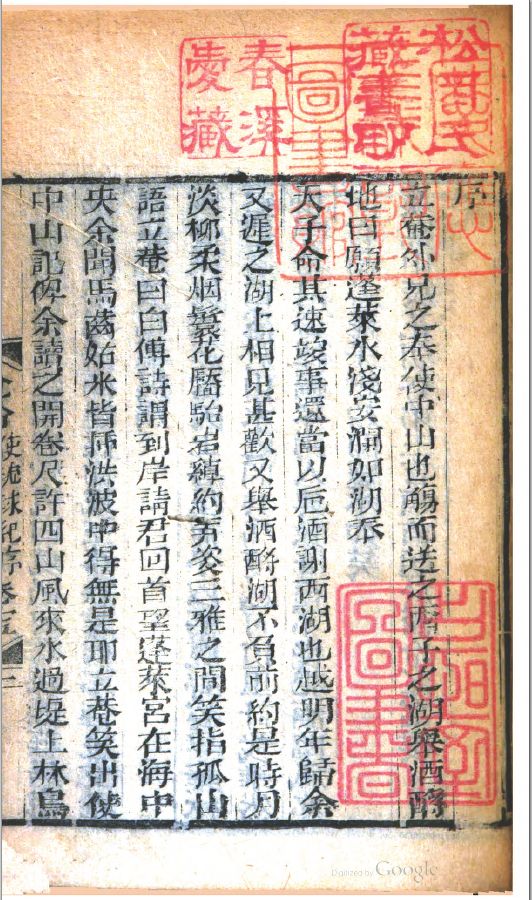 序
立菴外兄之奉使中山也觴而送之西子之湖舉酒酹
地曰願蓬萊水淺安瀾如湖奉
天子命其速竣事還當以卮酒謝西湖也越明年歸余
又遲之湖上相見甚歡又舉酒酹湖不負前約是時月
淡柳柔烟叢花靨駘宕綽約弄姿三雅之間笑指孤山
語立菴曰白傅詩謂到岸請君回首望蓬萊宮在海中
央余聞馬齒姑米皆挿洪波中得無是耶立菴笑出使
中山記俾余讀之開卷尺許四山風來水過堤上林鳥
使琉球紀序
春溪
愛藏
藏書印
圖書
Digitized by Google